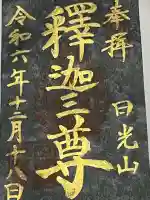 奉拝 日光山
釋迦三尊
令和六年十二月十八日